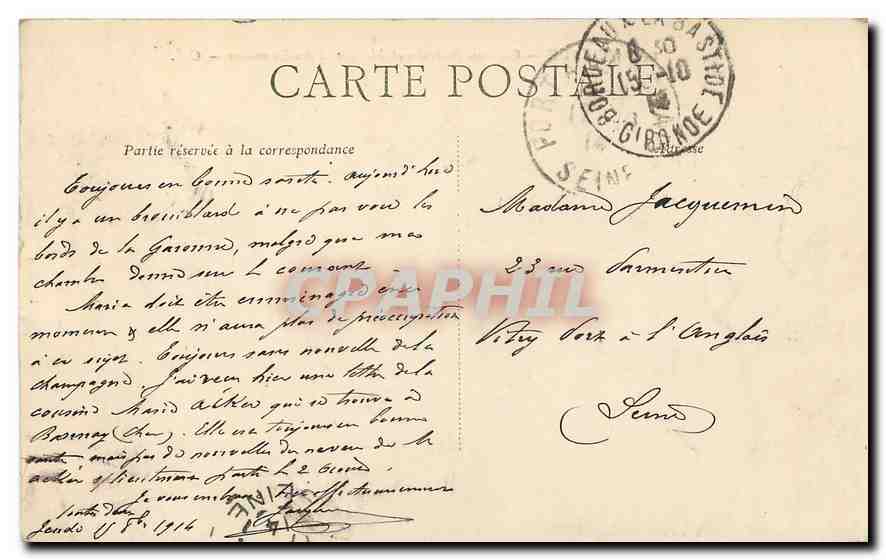 CARTE POSTALE
BORDEAUX LA BASTIDE
8 30
15 -10
GIRONDE
PORT
SEINE
Partie réservée à la correspondance
Adresse
Toujours en bonne santé. aujourd'hui
il y a un brouillard à ne pas voir les
bords de la Garonne, malgré que ma
chambre donne sur le courant
Maria doit être emménagée en ce
moment & elle n'aura plus de préoccupation
à ce sujet. Toujours sans nouvelle de la
champagne. J'ai reçu hier une lettre de la
cousine Marie qui se trouve à
(Cher). Elle est toujours en bonne
santé mais pas de nouvelles du neveu
s/lieutenant parti le 2
Je vous embrasse affectueusement
toutes deux
Jeudi 15 8bre 1914
CPAPHIL
Madame Jacquemin
23 rue Parmentier
Vitry Port à l'Anglais
(Seine)